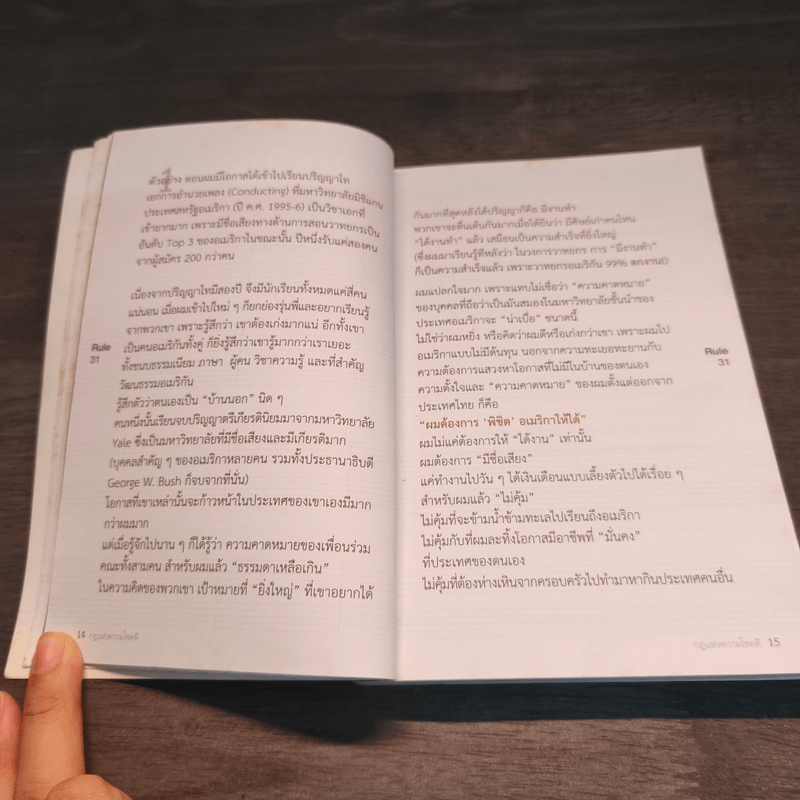 ตัวอย่าง ตอนผมมีโอกาสได้เข้าไปเรียนปริญญาโท
เอกการอำนวยเพลง (Conducting) ที่มหาวิทยาลัยมิชิแกน
ประเทศสหรัฐอเมริกา (ปี ค.ศ. 1995-6) เป็นวิชาเอกที่
เข้ายากมาก เพราะมีชื่อเสียงทางด้านการสอนวาทยกรเป็น
อันดับ Top 3 ของอเมริกาในขณะนั้น ปีหนึ่งรับแค่สองคน
จากผู้สมัคร 200 กว่าคน
เนื่องจากปริญญาโทมีสองปี จึงมีนักเรียนทั้งหมดแค่สี่คน
แน่นอน เมื่อผมเข้าไปใหม่ ๆ ก็ยกย่องรุ่นพี่และอยากเรียนรู้
จากพวกเขา เพราะรู้สึกว่า เขาต้องเก่งมากแน่ อีกทั้งเขา
เป็นคนอเมริกันทั้งคู่ ก็ยิ่งรู้สึกว่าเขารู้มากกว่าเราเยอะ
ทั้งขนบธรรมเนียม ภาษา ผู้คน วิชาความรู้ และที่สำคัญ
วัฒนธรรมอเมริกัน
รู้สึกตัวว่าตนเองเป็น “บ้านนอก” นิด ๆ
คนหนึ่งนั้นเรียนจบปริญญาตรีเกียรตินิยมมาจากมหาวิทยาลัย
Yale ซึ่งเป็นมหาวิทยาลัยที่มีชื่อเสียงและมีเกียรติมาก
(บุคคลสำคัญ ๆ ของอเมริกาหลายคน รวมทั้งประธานาธิบดี
George W. Bush ก็จบจากที่นั่น)
โอกาสที่เขาเหล่านั้นจะก้าวหน้าในประเทศของเขาเองมีมาก
กว่าผมมาก
แต่เมื่อรู้จักไปนาน ๆ ก็ได้รู้ว่า ความคาดหมายของเพื่อนร่วม
คณะทั้งสามคน สำหรับผมแล้ว “ธรรมดาเหลือเกิน”
ในความคิดของพวกเขา เป้าหมายที่ “ยิ่งใหญ่” ที่เขาอยากได้
Rule
31
14 กฎแห่งความโชคดี
กันมากที่สุดหลังได้ปริญญาก็คือ มีงานทำ
พวกเขาจะตื่นเต้นกันมากเมื่อได้ยินว่า มีศิษย์เก่าคนไหน
“ได้งานทำ” แล้ว เสมือนเป็นความสำเร็จที่ยิ่งใหญ่
(ซึ่งผมมาเรียนรู้ทีหลังว่า ในวงการวาทยกร การ “มีงานทำ”
ก็เป็นความสำเร็จแล้ว เพราะวาทยกรอเมริกัน 99% ตกงาน!)
ผมแปลกใจมาก เพราะแทบไม่เชื่อว่า “ความคาดหมาย”
ของบุคคลที่ถือว่าเป็นมันสมองในมหาวิทยาลัยชั้นนำของ
ประเทศอเมริกาจะ “น่าเบื่อ” ขนาดนี้
ไม่ใช่ว่าผมหยิ่ง หรือคิดว่าผมดีหรือเก่งกว่าเขา เพราะผมไป
อเมริกาแบบไม่มีต้นทุน นอกจากความทะเยอทะยานกับ
ความต้องการแสวงหาโอกาสที่ไม่มีในบ้านของตนเอง
ความตั้งใจและ “ความคาดหมาย” ของผมตั้งแต่ออกจาก
ประเทศไทย ก็คือ
“ผมต้องการ ‘พิชิต’ อเมริกาให้ได้”
ผมไม่แค่ต้องการให้ “ได้งาน” เท่านั้น
ผมต้องการ “มีชื่อเสียง”
แค่ทำงานไปวัน ๆ ได้เงินเดือนแบบเลี้ยงตัวไปได้เรื่อย ๆ
สำหรับผมแล้ว “ไม่คุ้ม”
ไม่คุ้มที่จะข้ามน้ำข้ามทะเลไปเรียนถึงอเมริกา
ไม่คุ้มกับที่ผมละทิ้งโอกาสมีอาชีพที่ “มั่นคง”
ที่ประเทศของตนเอง
ไม่คุ้มที่ต้องห่างเหินจากครอบครัวไปทำมาหากินประเทศคนอื่น
Rule
31
กฎแห่งความโชคดี 15